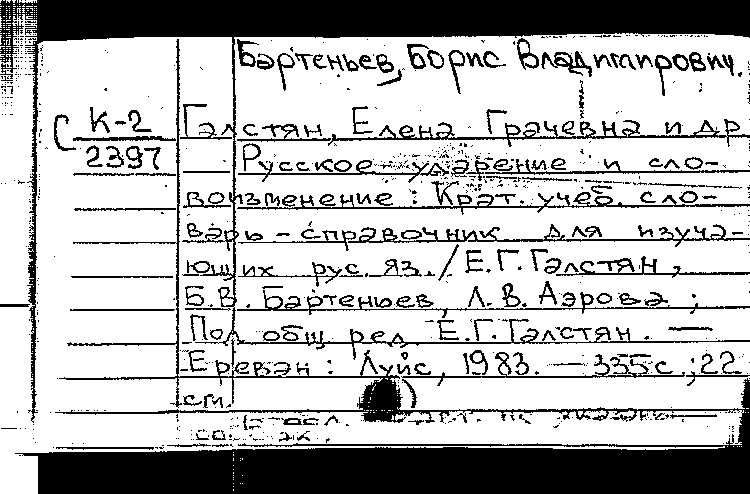 Бартеньев, Борис Владимирович.
К-2
2397
Галстян, Елена Грачевна и др
Русское ударение и сло-
воизменение : Крат. учеб. сло-
варь-справочник для изуча-
ющих рус. яз. / Е.Г. Галстян,
Б.В. Бартеньев, Л.В. Аэрова ;
Под общ ред. Е.Г. Галстян. —
Ереван : Луйс, 1983. — 335 с. ; 22
см.
не указаны.